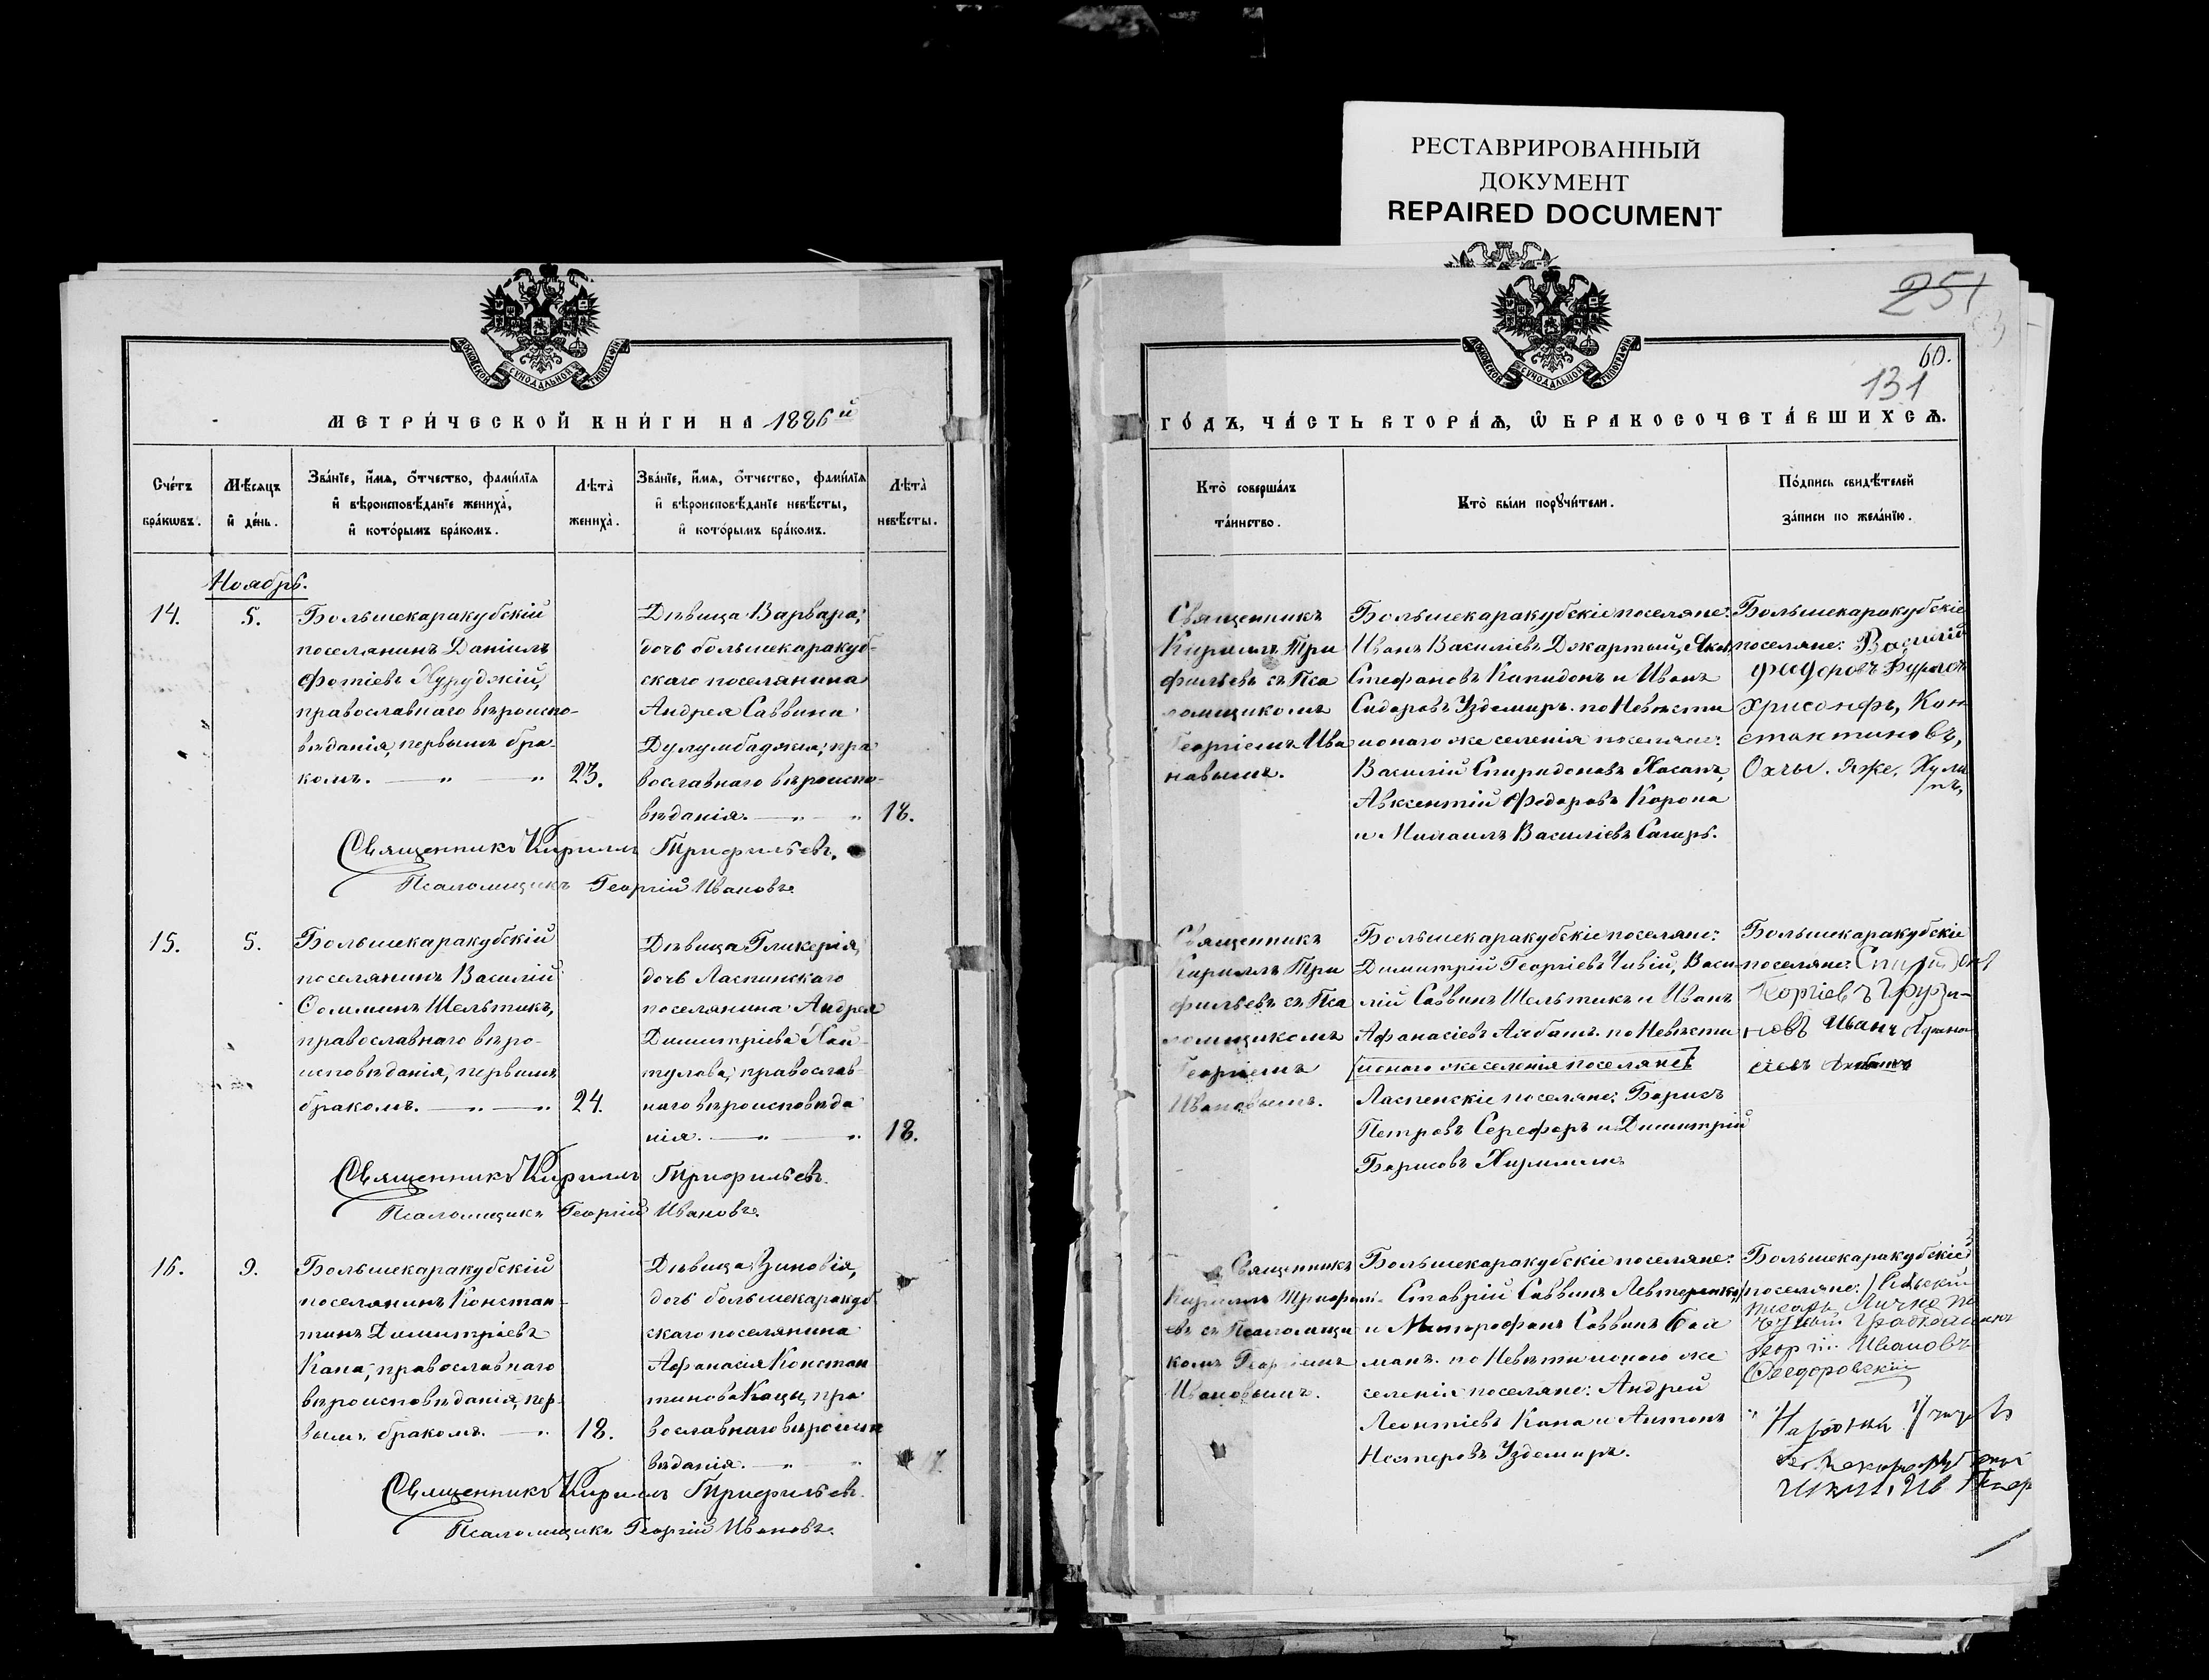 РЕСТАВРИРОВАННЫЙ
ДОКУМЕНТ
REPAIRED DOCUMENT
МОСКОВСКОЙ СѴНОДАЛЬНОЙ ТИПОГРАФІИ
МЕТРИ́ЧЕСКОЙ КНИ́ГИ НА 1886й
Сче́тъ бра́кωвъ.
Мѣ́сяцъ и҆ де́нь.
Зва́нїе, и҆́мя, ѻ҆́тчество, фами́лїя и҆ вѣроисповѣ́данїе жениха̀, и҆ кото́рымъ бра́комъ.
Лѣ́та̀ жениха̀.
Зва́нїе, и҆́мя, ѻ҆́тчество, фами́лїя и҆ вѣроисповѣ́данїе невѣ́сты, и҆ кото́рымъ бра́комъ.
Лѣ́та̀ невѣ́сты.
Ноябрь.
14.
5.
Большекаракубскій
поселянинъ Даніилъ
Фотіевъ Хуруджій,
православнаго вѣроиспо-
вѣданія, первымъ бра-
комъ. — „ — „
23.
Дѣвица Варвара,
дочь большекаракуб-
скаго поселянина
Андрея Саввина
Дулумбаджи, пра
вославнаго вѣроиспо-
вѣданія. — „ — „
18.
Священникъ Кириллъ Трифильевъ.
Псаломщикъ Георгій Ивановъ.
15.
5.
Большекаракубскій
поселянинъ Василій
Ѳоминъ Шельтикъ,
православнаго вѣро-
исповѣданія, первымъ
бракомъ. — „ — „
24.
Дѣвица Гликерія,
дочь Ласпинскаго
поселянина Андрея
Димитріева Хан-
тулова, православ-
наго вѣроисповѣда
нія. — „ — „
18.
Священникъ Кириллъ Трифильевъ.
Псаломщикъ Георгій Ивановъ.
16.
9.
Большекаракубскій
поселянинъ Констан-
тинъ Димитріевъ
Капа, православнаго
вѣроисповѣданія, пер-
вымъ бракомъ. — „
18.
Дѣвица Зиновія,
дочь большекаракуб-
скаго поселянина
Афанасія Констан
тинова Кацы, пра
вославнаго вѣроиспо
вѣданія. — „ — „
17.
Священникъ Кириллъ Трифильевъ.
Псаломщикъ Георгій Ивановъ.
251
60.
131
МОСКОВСКОЙ СѴНОДАЛЬНОЙ ТИПОГРАФІИ
ГО́ДЪ, ЧА́СТЬ ВТОРА́Ѧ, Ѿ БРАКОСОЧЕТА́ВШИХСѦ.
Кто̀ соверша́лъ та́инство.
Кто̀ бы́ли порꙋчи́тели.
По́дпись свидѣ́телей за́писи по жела́нїю.
Священникъ
Кириллъ Три
фильевъ съ Пса
ломщикомъ
Георгіемъ Ива
новымъ.
Большекаракубскіе поселяне:
Иванъ Василіевъ Джартый, Яковъ
Стефановъ Капидонъ и Иванъ
Сидоровъ Уздемиръ. по Невѣсти
ионаго же селенія поселяне:
Василій Спиридоновъ Хасапъ,
Авксентій Федоровъ Корона
и Михаилъ Василіевъ Сагиръ.
Большекаракубскіе
поселяне: Василій
Федоровъ
Хрисанфъ, Кон
стантиновъ,
Священникъ
Кириллъ Три
фильевъ съ Пса
ломщикомъ
Георгіемъ
Ивановымъ.
Большекаракубскіе поселяне:
Димитрій Георгіевъ Чивій, Васи-
лій Саввинъ Шельтикъ и Иванъ
Афанасіевъ Акбашъ. по Невѣсти
ионаго же селенія поселяне
Ласпенскіе поселяне: Борисъ
Петровъ Серефоръ и Димитрій
Борисовъ
Большекаракубскіе
поселяне: Спиридонъ
Иванъ Афана
сіевъ Акбашъ
Священникъ
Кириллъ Трифилі-
евъ съ Псаломщи
комъ Георгіемъ
Ивановымъ.
Большекаракубскіе поселяне:
Ставрій Саввинъ
и Митрофанъ Саввинъ
по Невѣсти ионаго же
селенія поселяне: Андрей
Леонтіевъ Капа и Антонъ
Нестеровъ Уздемиръ.
Большекаракубскіе
поселяне: Сельскій
писарь
Георгій Ивановъ
Федоровскій